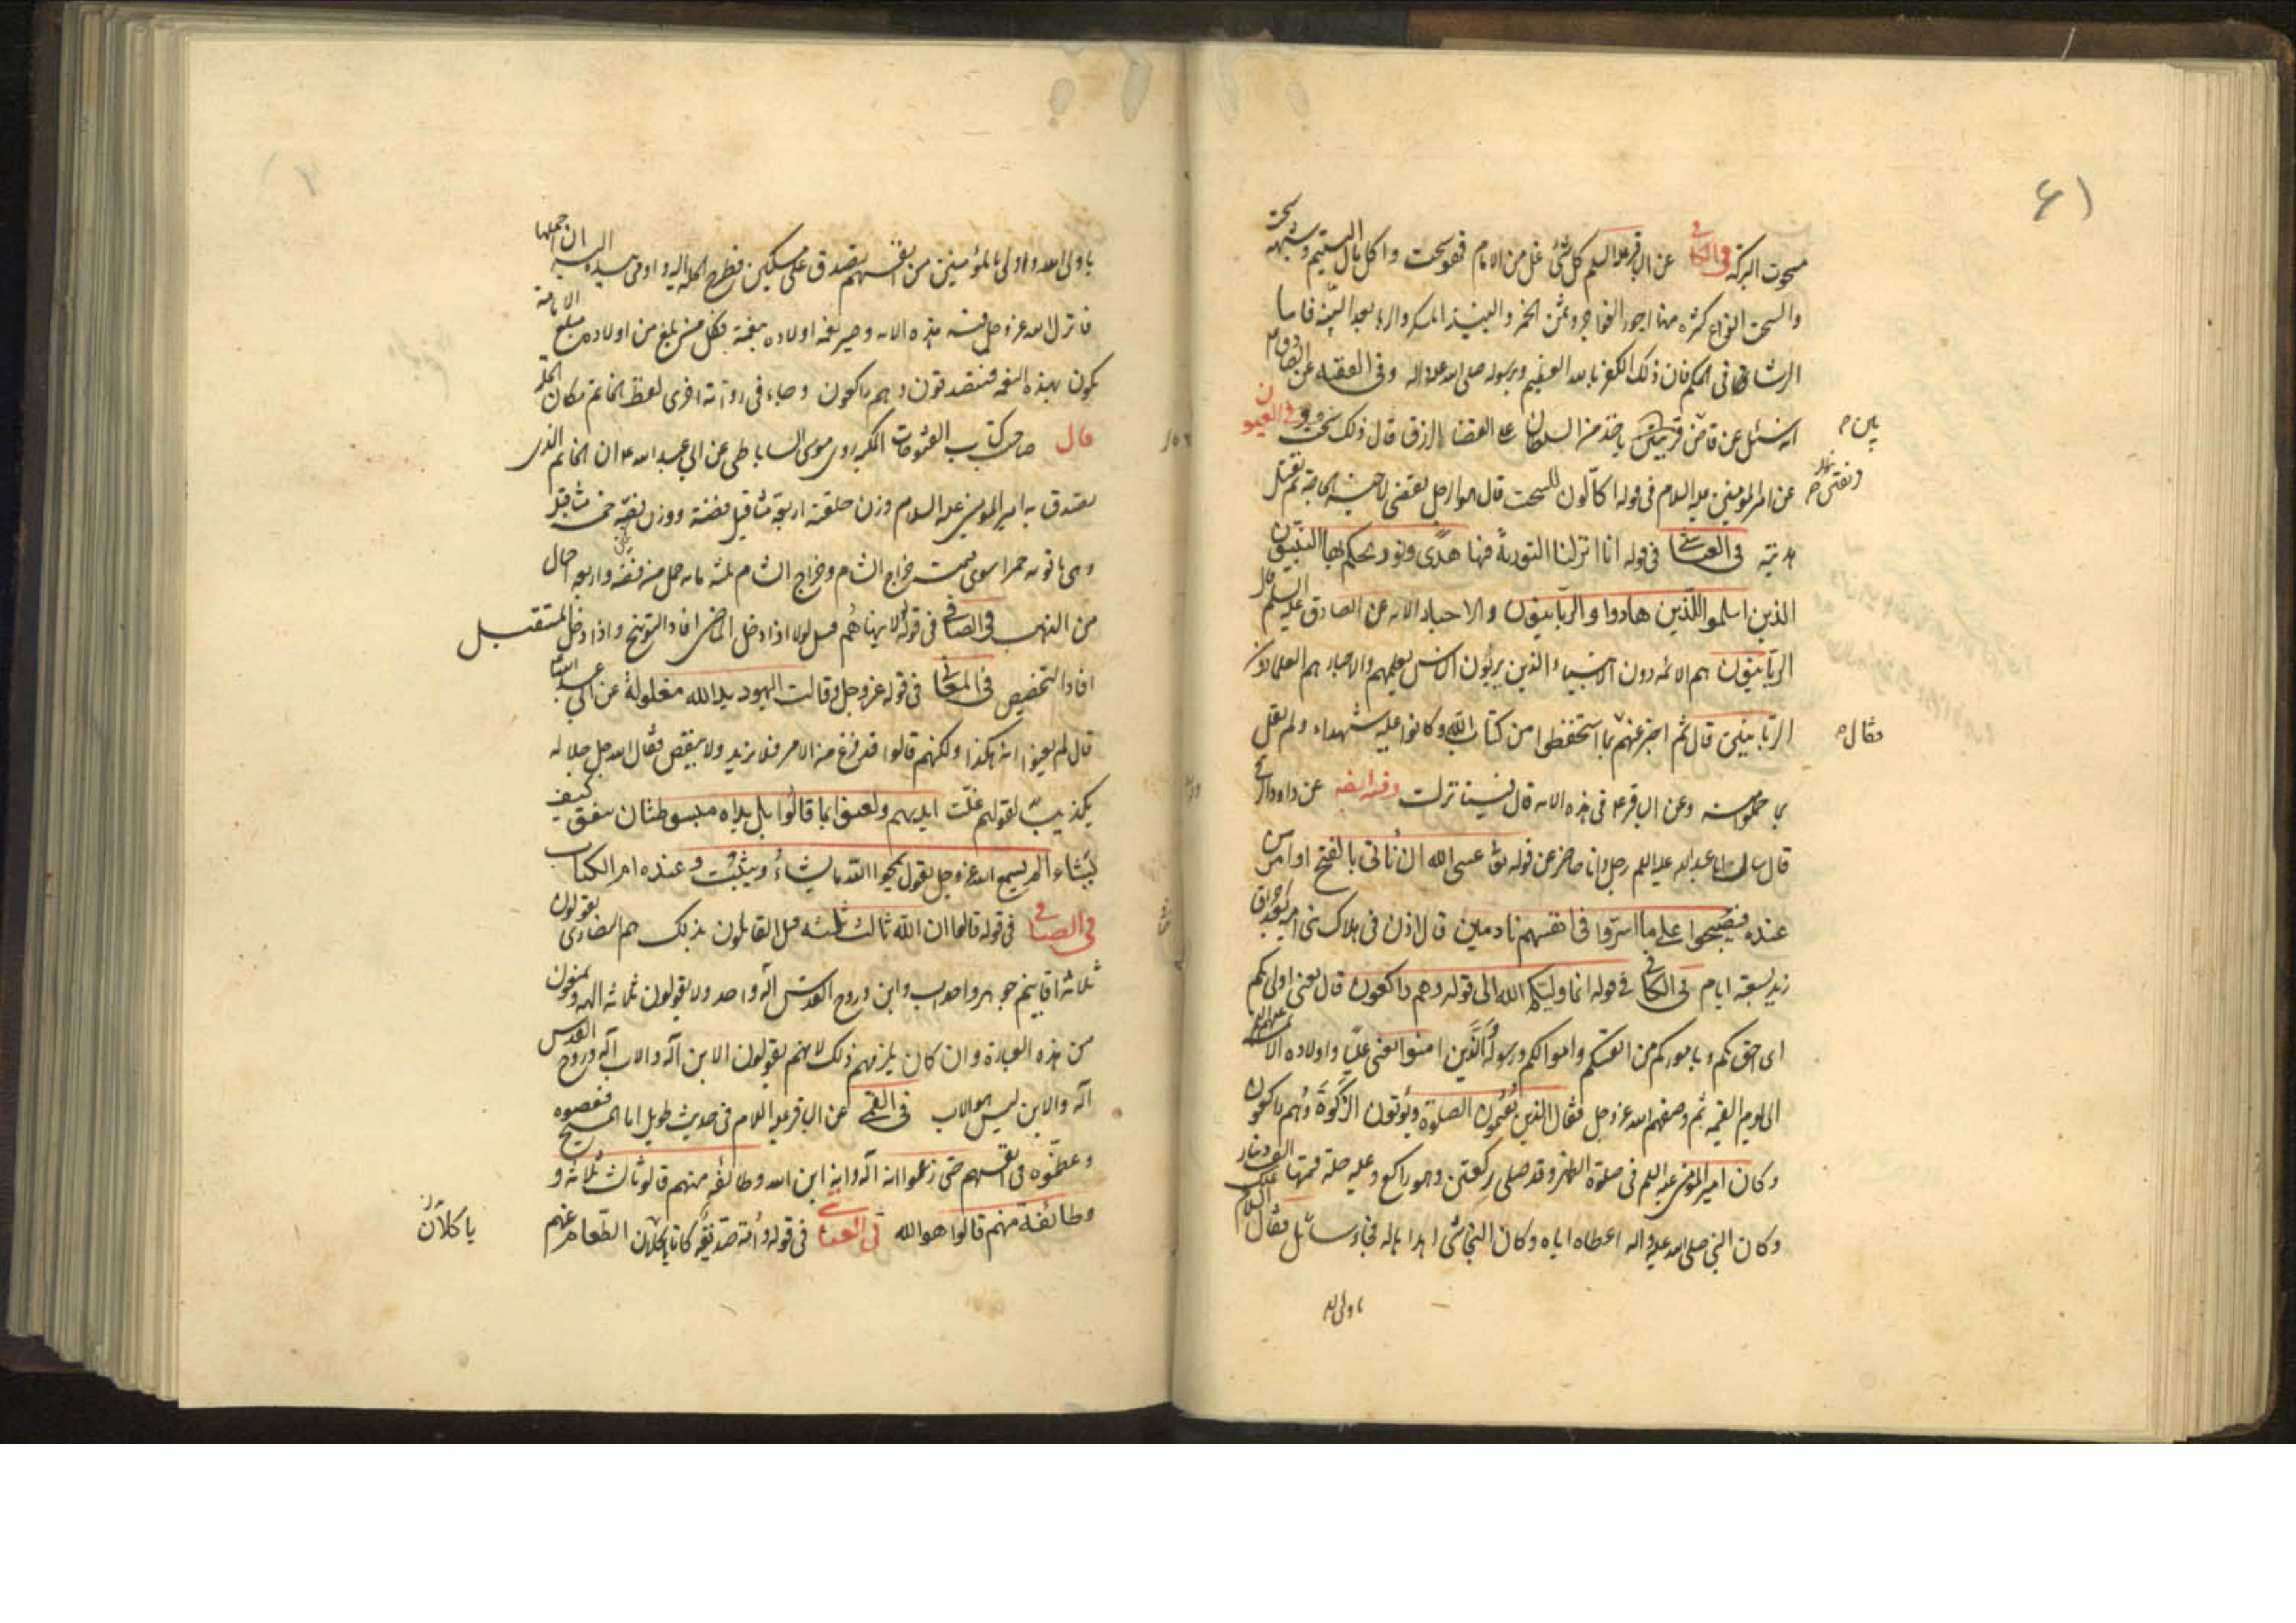 ٤١
مسحوت البركة في الكافي عن الباقر عليه السلم كل شئ غل من الامام فهو سحت واكل مال اليتيم وشبهه سحت
والسحت انواع كثيرة منها اجور الفواجر وثمن الخمر والنبيذ المسكر والربا بعد البينة فاما
الرشا في الحكم فان ذلك الكفر بالله العظيم وبرسوله صلى الله عليه واله وفى الفقيه عن الصادق ع
انه سئل عن قاض قريتين ياخذ من السلطان على القضا الرزق قال ذلك سحت وفي العيون
بين ح
عن امير المؤمنين عليه السلام في قوله اكالون للسحت قال هو الرجل يقضى لاخيه الحاجة ثم يقبل
هديته في العياشي في قوله انا انزلنا التورية فيها هدى ونور يحكم بها النبيون
الذين اسلموا للذين هادوا والربانيون والاحبار الايه عن الصادق عليه السلم قال
الربانيون هم الائمه دون الانبياء الذين يربون الناس بعلمهم والاحبار هم العلماء دون
الربانيين قال ثم اخبر عنهم فقال بما استحفظوا من كتاب الله وكانوا عليه شهداء ولم يقل
فقال ح
بما حملوا منه وعن الباقر ع في هذه الايه قال فينا نزلت وفيه ايضه عن داود الرقي
قال سال ابا عبد الله عليه السلم رجل وانا حاضر عن قوله تعا عسى الله ان ياتى بالفتح او امر من
عنده فيصبحوا على ما اسروا في انفسهم نادمين قال اذن في هلاك بنى اميه بعد احراق
زيد بسبعة ايام في الكافي في قوله انما وليكم الله الى قوله وهم راكعون قال يعنى اولى بكم
اى احق بكم وباموركم من انفسكم واموالكم ورسوله والذين امنوا يعنى عليا واولاده الائمه عليهم السلم
الى يوم القيمه ثم وصفهم الله عز وجل فقال الذين يقيمون الصلوة ويؤتون الزكوة وهم راكعون
وكان امير المؤمنين عليه السلم في صلوة الظهر وقد صلى ركعتين وهو راكع وعليه حلة قيمتها الف دينار
وكان النبي صلى الله عليه واله اعطاه اياه وكان النجاشي اهداها له فجاء سائل فقال السلام عليك
ياولى الله
ياولى الله واولى بالمؤمنين من انفسهم تصدق على مسكين فطرح الحله اليه واومى بيده اليه ان احملها
فانزل الله عز وجل فيه هذه الايه وصير نعمه اولاده بنعمته فكل من بلغ من اولاده مبلغ الامامة
يكون بهذه النعمه فيتصدقون وهم راكعون وجاء في رواية اخرى لفظ الخاتم مكان الحلة
قال صاحب كتاب الفتوحات المكيه روى موسى الساباطى عن ابي عبد الله ع ان الخاتم الذى
تصدق به امير المؤمنين عليه السلام وزن حلقته اربعة مثاقيل فضة ووزن فصه خمسة مثاقيل
وهى ياقوته حمرا سوى قيمته خراج الشام وخراج الشام ثلثمائه حمل من فضة واربعه احمال
من الذهب في الصافي في قوله لولا ينهاهم قيل لولا اذا دخل الماضى افاد التوبيخ واذا دخل المستقبل
افاد التحضيض في المعاني في قوله عز وجل وقالت اليهود يد الله مغلولة عن ابي عبد الله ع
قال لم يعنوا انه هكذا ولكنهم قالوا قد فرغ من الامر فلا يزيد ولا ينقص فقال الله جل جلاله
تكذيبا لقولهم غلت ايديهم ولعنوا بما قالوا بل يداه مبسوطتان ينفق كيف
يشاء الم تسمع الله عز وجل يقول يمحوا الله ما يشاء ويثبت وعنده ام الكتاب
في الصافي في قوله قالوا ان الله ثالث ثلثه قيل القائلون بذلك هم النصارى يقولون
ثلاثة اقانيم جوهر واحد اب وابن وروح القدس اله واحد ولا يقولون ثلاثه الهه ويمنعون
من هذه العبارة وان كان يلزمهم ذلك لانهم يقولون الابن اله والاب اله وروح القدس
اله والابن ليس هو الاب في القمي عن الباقر عليه السلام في حديث طويل اما المسيح فعصوه
وعظموه في انفسهم حتى زعموا انه اله وانه ابن الله وطائفه منهم قالو ثالث ثلاثه و
وطائفة منهم قالوا هو الله في العياشي في قوله وامه صديقه كانا ياكلان الطعام
ياكلان